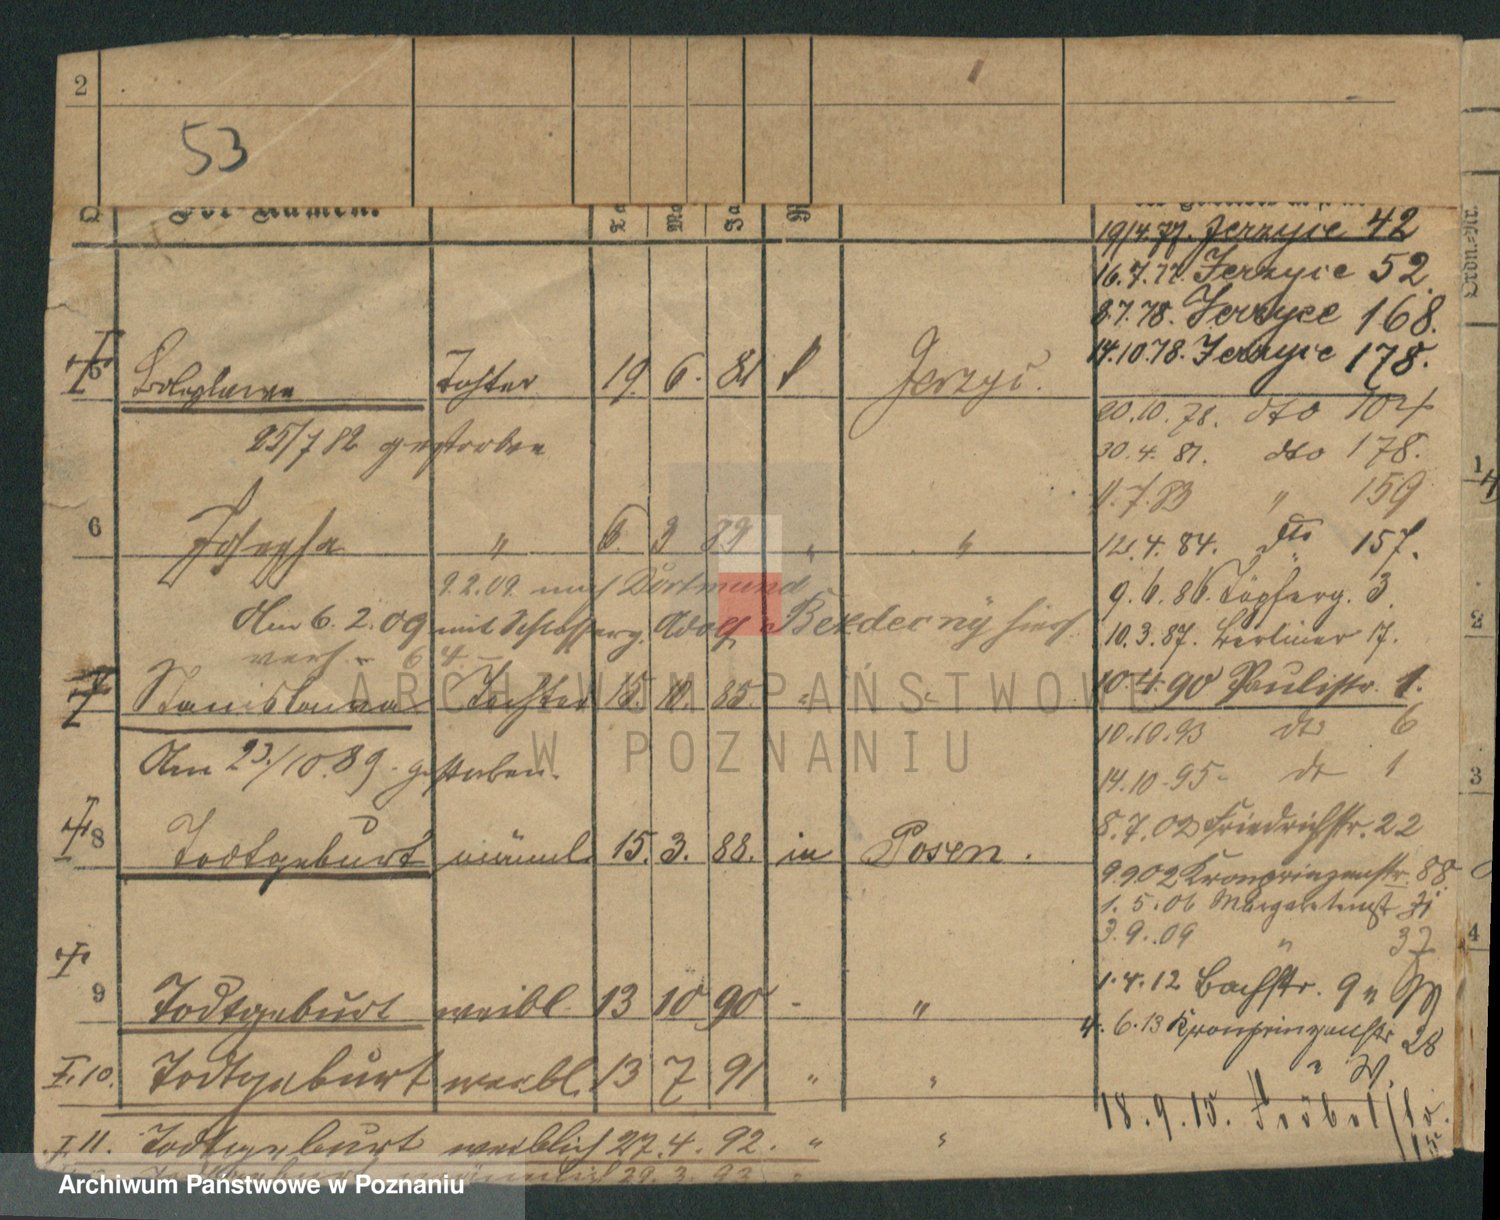 2
53
Vor-Namen.
Ordn.-Nr.
19/4.77. Jerzyce 42
16.7.77. Jerzyce 52.
8.7.78. Jerzyce 168.
14.10.78. Jerzyce 178.
† 5 Boleslawa Tochter 19. 6. 81 Jerzyc.
20.10.78. dto 104
25/7 82 gestorben
30.4.81. dto 178.
11.7.83 " 159
6 Josepha " 6. 3 89 " "
12.4.84. dto 157.
9.2.09. nach Dortmund
9.6.86. Töpferg. 3.
Am 6.2.09 mit Schlosserg. Adolf Bezdecny hier
verh. 64.
10.3.87. Berliner 17.
† 7 Stanislawa Tochter 15. 10. 85. " "
10.4.90 Paulistr. 1.
10.10.93 dto 6
Am 23./10.89. gestorben.
14.10.95 dto 1
† 8 Todtgeburt männl. 15. 3. 88. in Posen.
8.7.02 Friedrichstr. 22
9.9.02 Kronprinzenstr. 88
1.5.06 Margaretenst. 31
3.9.09 " 37
† 9 Todtgeburt weibl. 13 10 90 - "
1.4.12 Bachstr. 9
4.6.13 Kronprinzenstr 28
† 10. Todtgeburt weibl. 13 7 91 " "
" W.
18.9.15.
† 11. Todtgeburt weiblich 27. 4. 92. " "
Todtgeburt männlich 29. 3. 93 "
ARCHIWUM PAŃSTWOWE
W POZNANIU
Archiwum Państwowe w Poznaniu
1
2
3
4